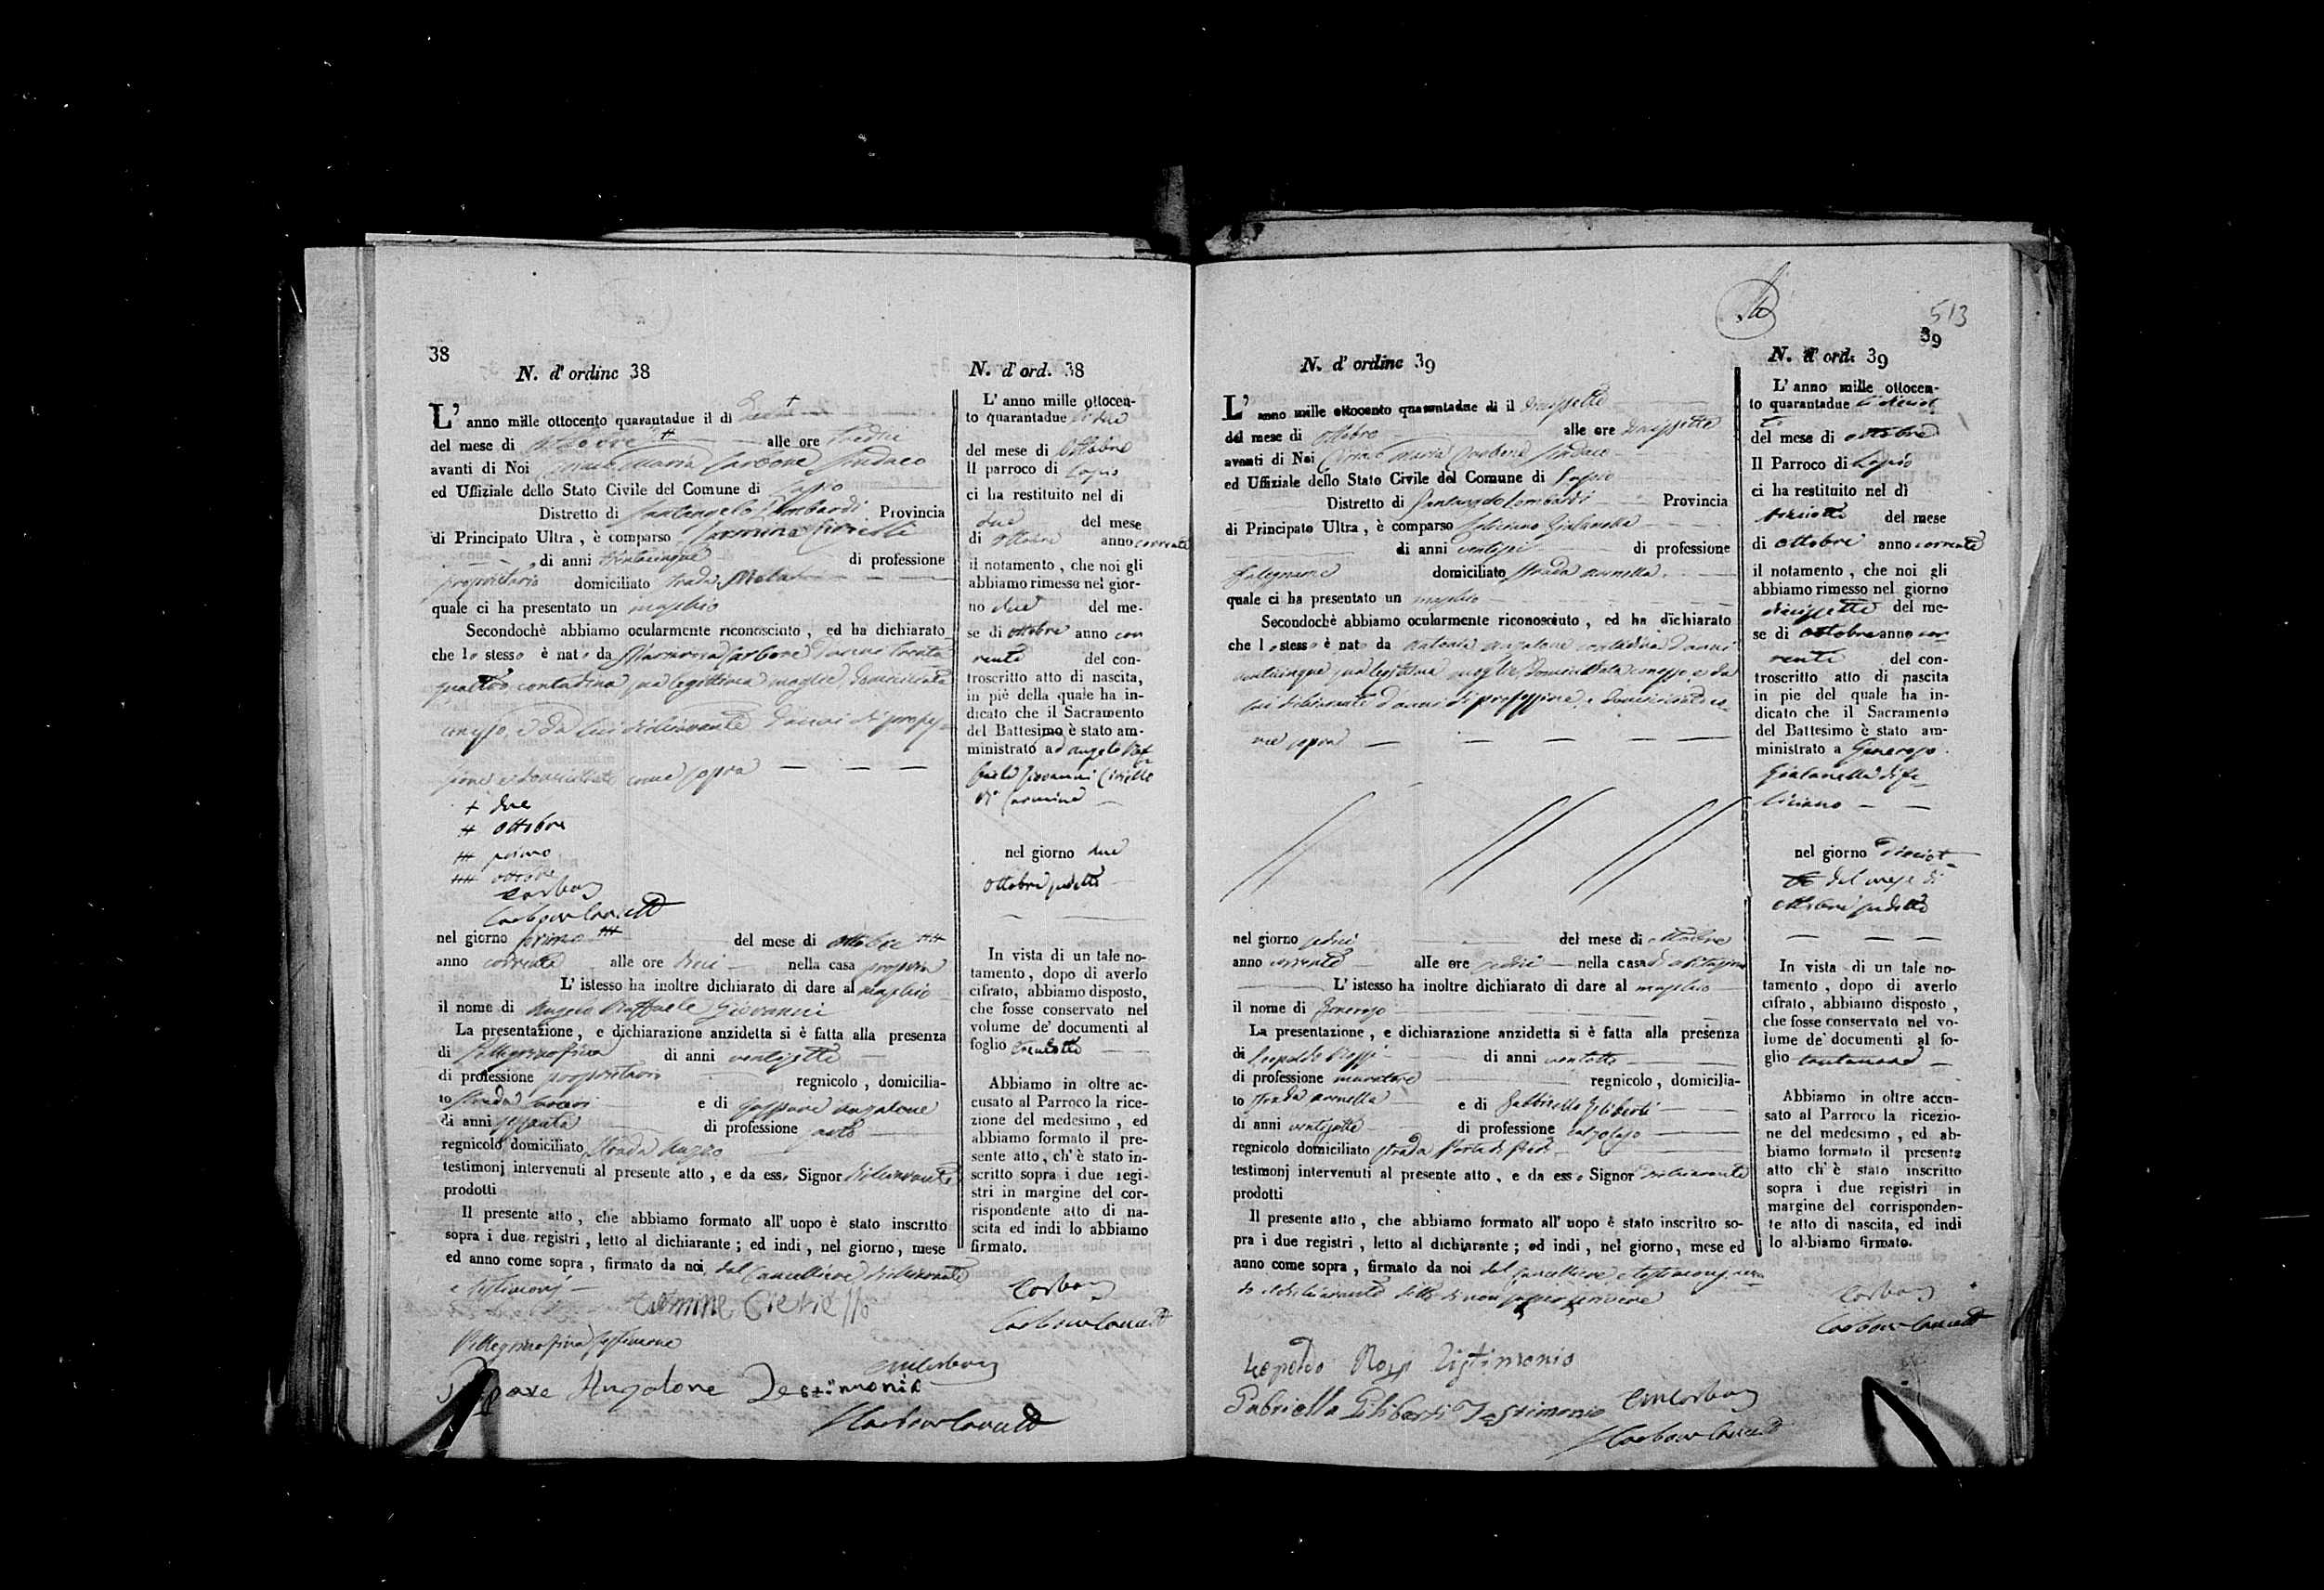 38
N. d' ordine 38
L' anno mille ottocento quarantadue il dì
del mese di alle ore tredici
avanti di Noi Maria Carbone Sindaco
ed Uffiziale dello Stato Civile del Comune di Lapio
Distretto di Santangelo Lombardi Provincia
di Principato Ultra, è comparso Carmine Ciriello
di anni trentacinque di professione
proprietario domiciliato strada
quale ci ha presentato un maschio
Secondochè abbiamo ocularmente riconosciuto, ed ha dichiarato
che lo stesso è nato da Carbone d'anni trenta
quattro contadina sua legittima moglie, domiciliata
con esso, e da lui dichiarante d'anni di profes=
sione e domiciliato come sopra
+ due
++ ottobre
+++ primo
++++ ottobre
Carbone
nel giorno primo +++ del mese di ottobre ++++
anno corrente alle ore dieci nella casa propria
L' istesso ha inoltre dichiarato di dare al maschio
il nome di Angelo Raffaele Giovanni
La presentazione, e dichiarazione anzidetta si è fatta alla presenza
di Pellegrino di anni ventisette
di professione proprietario regnicolo, domicilia-
to strada e di Gaspare Angalone
di anni sessanta di professione
regnicolo domiciliato strada
testimonj intervenuti al presente atto, e da esso Signor dichiarante
prodotti
Il presente atto, che abbiamo formato all' uopo è stato inscritto
sopra i due registri, letto al dichiarante; ed indi, nel giorno, mese
ed anno come sopra, firmato da noi dal Cancelliere dichiarante
e testimonj
Carmine Cieriello
Pellegrino testimone
Angalone Testimonio
N. d' ord. 38
L' anno mille ottocen-
to quarantadue li due
del mese di Ottobre
Il parroco di Lapio
ci ha restituito nel dì
due del mese
di Ottobre anno corrente
il notamento, che noi gli
abbiamo rimesso nel gior-
no due del me-
se di ottobre anno cor
rente del con-
troscritto atto di nascita,
in piè della quale ha in-
dicato che il Sacramento
del Battesimo è stato am-
ministrato ad Angelo Raf
faele Giovanni Ciriello
di Carmine
nel giorno due
Ottobre sudetto
In vista di un tale no-
tamento, dopo di averlo
cifrato, abbiamo disposto,
che fosse conservato nel
volume de' documenti al
foglio trentotto
Abbiamo in oltre ac-
cusato al Parroco la rice-
zione del medesimo, ed
abbiamo formato il pre-
sente atto, ch' è stato in-
scritto sopra i due regi-
stri in margine del cor-
rispondente atto di na-
scita ed indi lo abbiamo
firmato.
Carbone
513
39
N. d' ordine 39
L' anno mille ottocento quarantadue di il diciassette
del mese di Ottobre alle ore diciassette
avanti di Noi Maria Carbone Sindaco
ed Uffiziale dello Stato Civile del Comune di Lapio
Distretto di Santangelo Lombardi Provincia
di Principato Ultra, è comparso Feliciano Gialanella
di anni ventisei di professione
falegname domiciliato strada
quale ci ha presentato un maschio
Secondochè abbiamo ocularmente riconosciuto, ed ha dichiarato
che lo stesso è nato da Antonia Angalone contadina d'anni
venticinque sua legittima moglie, domiciliata con esso, e da
lui dichiarante d'anni di professione, e domiciliato co
me sopra
nel giorno sedici del mese di ottobre
anno corrente alle ore sedici nella casa di abitazione
L' istesso ha inoltre dichiarato di dare al maschio
il nome di Generoso
La presentazione, e dichiarazione anzidetta si è fatta alla presenza
di Leopoldo Rossi di anni ventotto
di professione muratore regnicolo, domicilia-
to strada e di Gabbriello Giliberti
di anni ventisette di professione calzolajo
regnicolo domiciliato strada Porta di
testimonj intervenuti al presente atto, e da esso Signor dichiarante
prodotti
Il presente atto, che abbiamo formato all' uopo è stato inscritto so-
pra i due registri, letto al dichiarante; ed indi, nel giorno, mese ed
anno come sopra, firmato da noi dal Cancelliere, e testimonj, aven
do il dichiarante detto di non saper scrivere
Leopoldo Rossi Testimonio
Gabriello Giliberti Testimonio
N. d' ord. 39
L' anno mille ottocen-
to quarantadue li diciot
to
del mese di ottobre
Il Parroco di Lapio
ci ha restituito nel dì
diciotto del mese
di ottobre anno corrente
il notamento, che noi gli
abbiamo rimesso nel giorno
diciassette del me-
se di ottobre anno cor-
rente del con-
troscritto atto di nascita
in pie del quale ha in-
dicato che il Sacramento
del Battesimo è stato am-
ministrato a Generoso
Gialanella di Fe-
liciano
nel giorno diciot-
to del mese di
ottobre sudetto
In vista di un tale no-
tamento, dopo di averlo
cifrato, abbiamo disposto,
che fosse conservato nel vo-
lume de' documenti al fo-
glio trentanove
Abbiamo in oltre accu-
sato al Parroco la ricezio-
ne del medesimo, ed ab-
biamo formato il presente
atto ch' è stato inscritto
sopra i due registri in
margine del corrisponden-
te atto di nascita, ed indi
lo abbiamo firmato.
Carbone